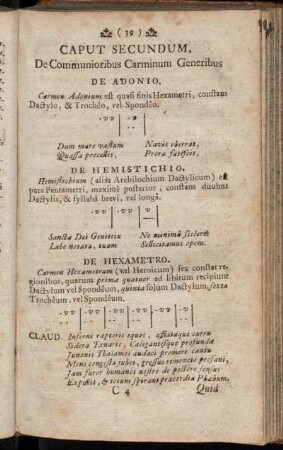 ( 39 )
CAPUT SECUNDUM,
De Communioribus Carminum Generibus
DE ADONIO.
Carmen Adonium est quasi finis Hexametri, constans
Dactylo, & Trochêo, vel Spondêo.
Dum mare vastum Navis oberrat,
Quassa procellis, Prora fatiscit.
DE HEMISTICHIO.
Hemistichium (aliàs Archilochium Dactylicum) est
pars Pentametri, maximè posterior, constans duobus
Dactylis, & syllabâ brevi, vel longâ.
Sancta Dei Genitrix Ne minimâ steteret
Labe notata, suam Sollicitamus opem.
DE HEXAMETRO.
Carmen Hexametrum (vel Heroicum) sex constat re-
gionibus, quarum prima quatuor ad libitum recipiunt
Dactylum vel Spondêum, quinta solum Dactylum, sexta
Trochêum, vel Spondêum.
CLAUD. Inferni raptoris equos, afflataque curru
Sidera Tænario, Caligantesque profundæ
Junonis Thalamos audaci promere cantu
Mens congesta jubet, gressus removete profani,
Jam furor humanos nostro de pectore sensus
Expulit, & totum spirant præcordia Phœbum.
C 4 Quid